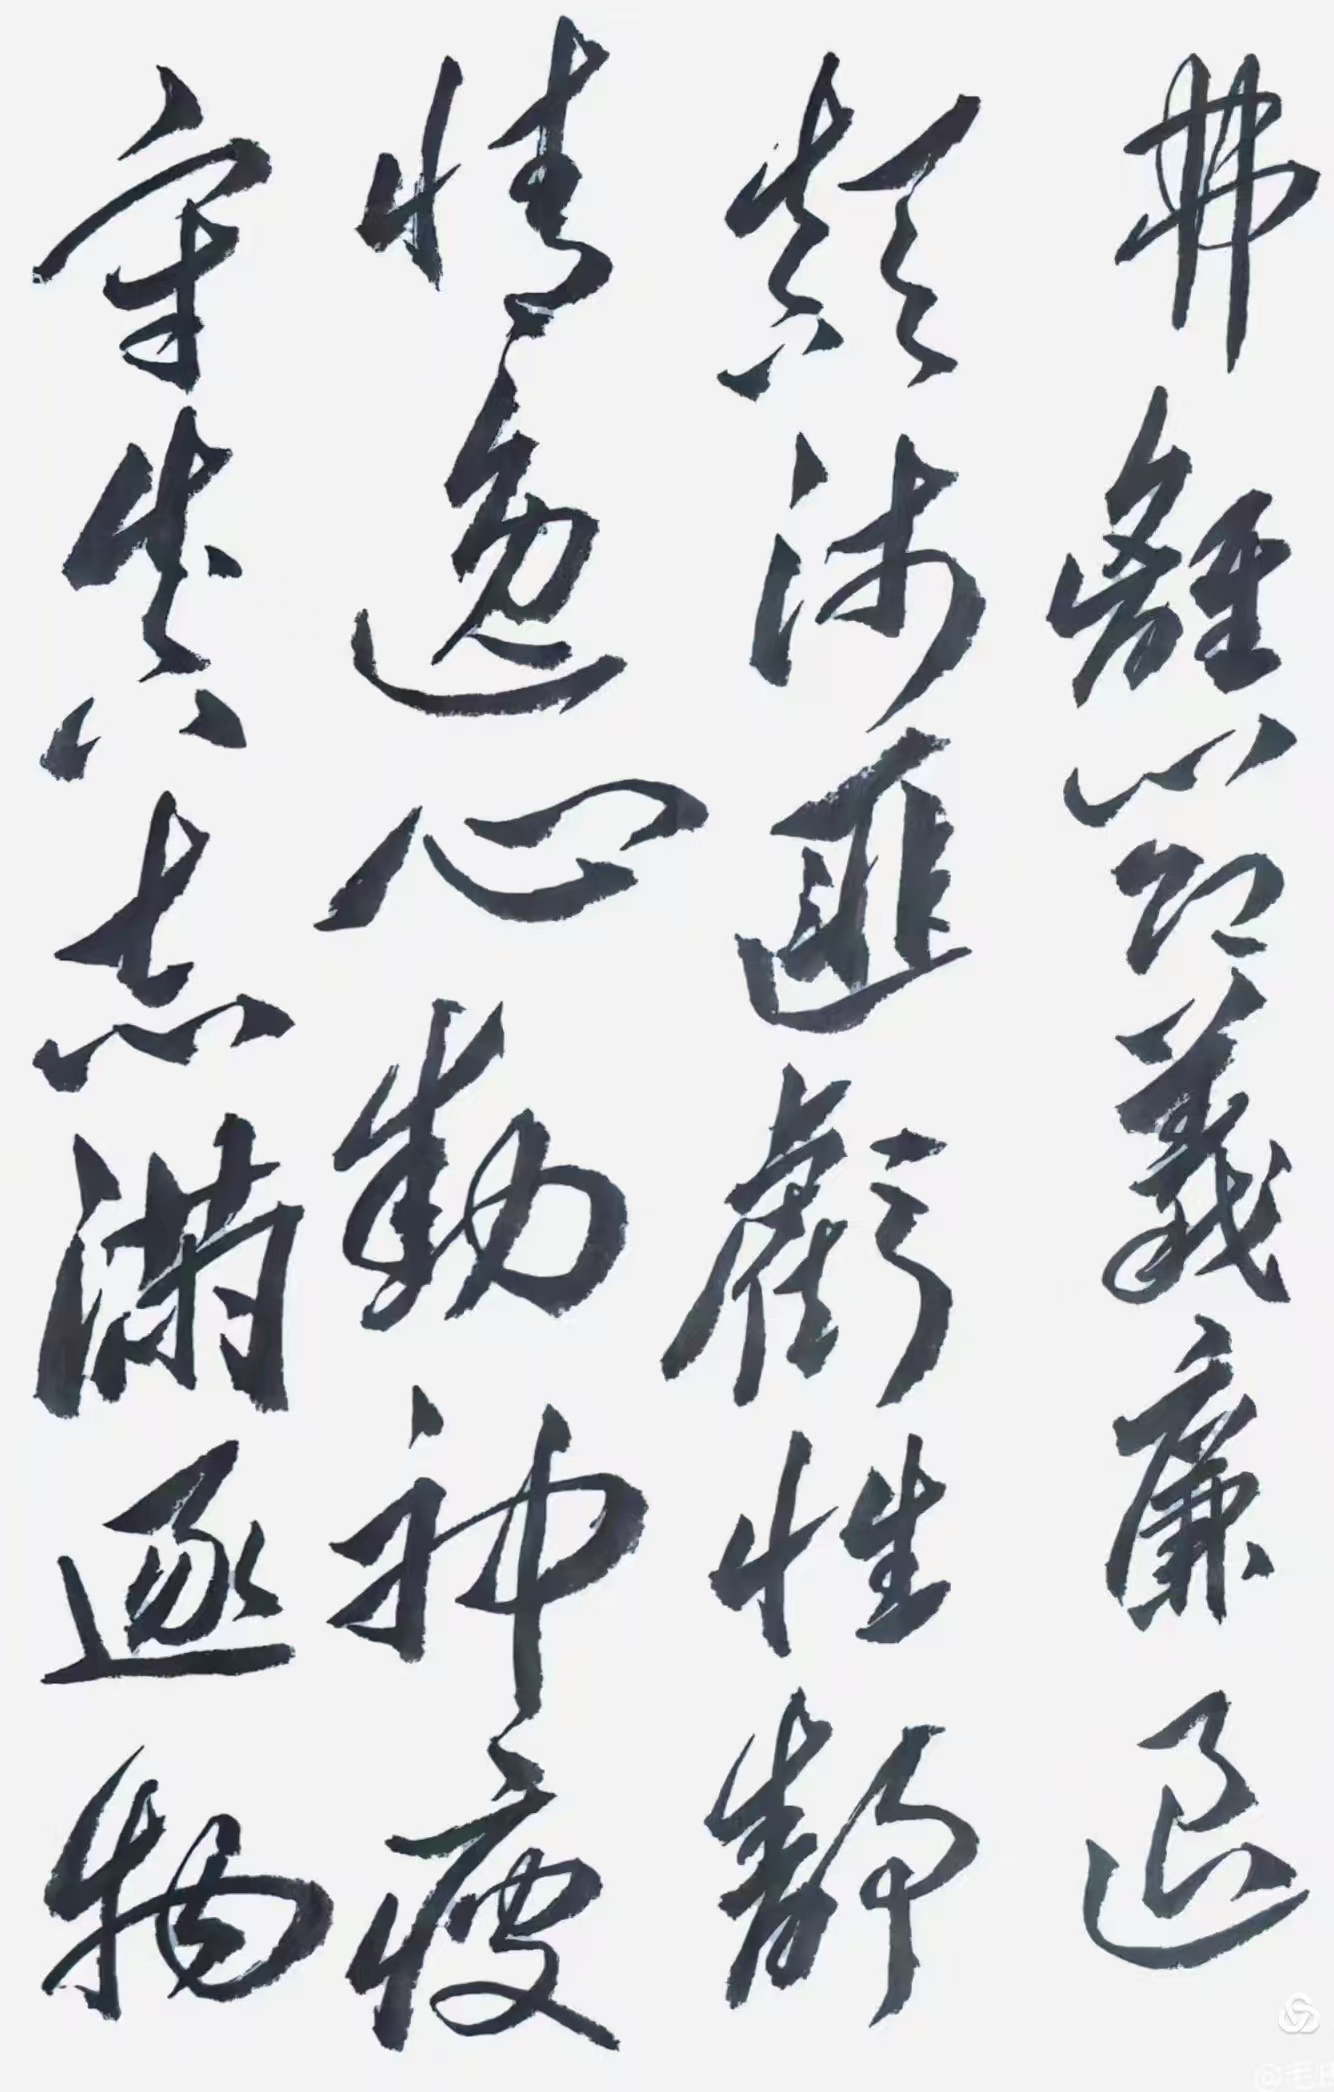 弗離節義廉退
顛沛匪虧性靜
情逸心動神疲
守真志滿逐物